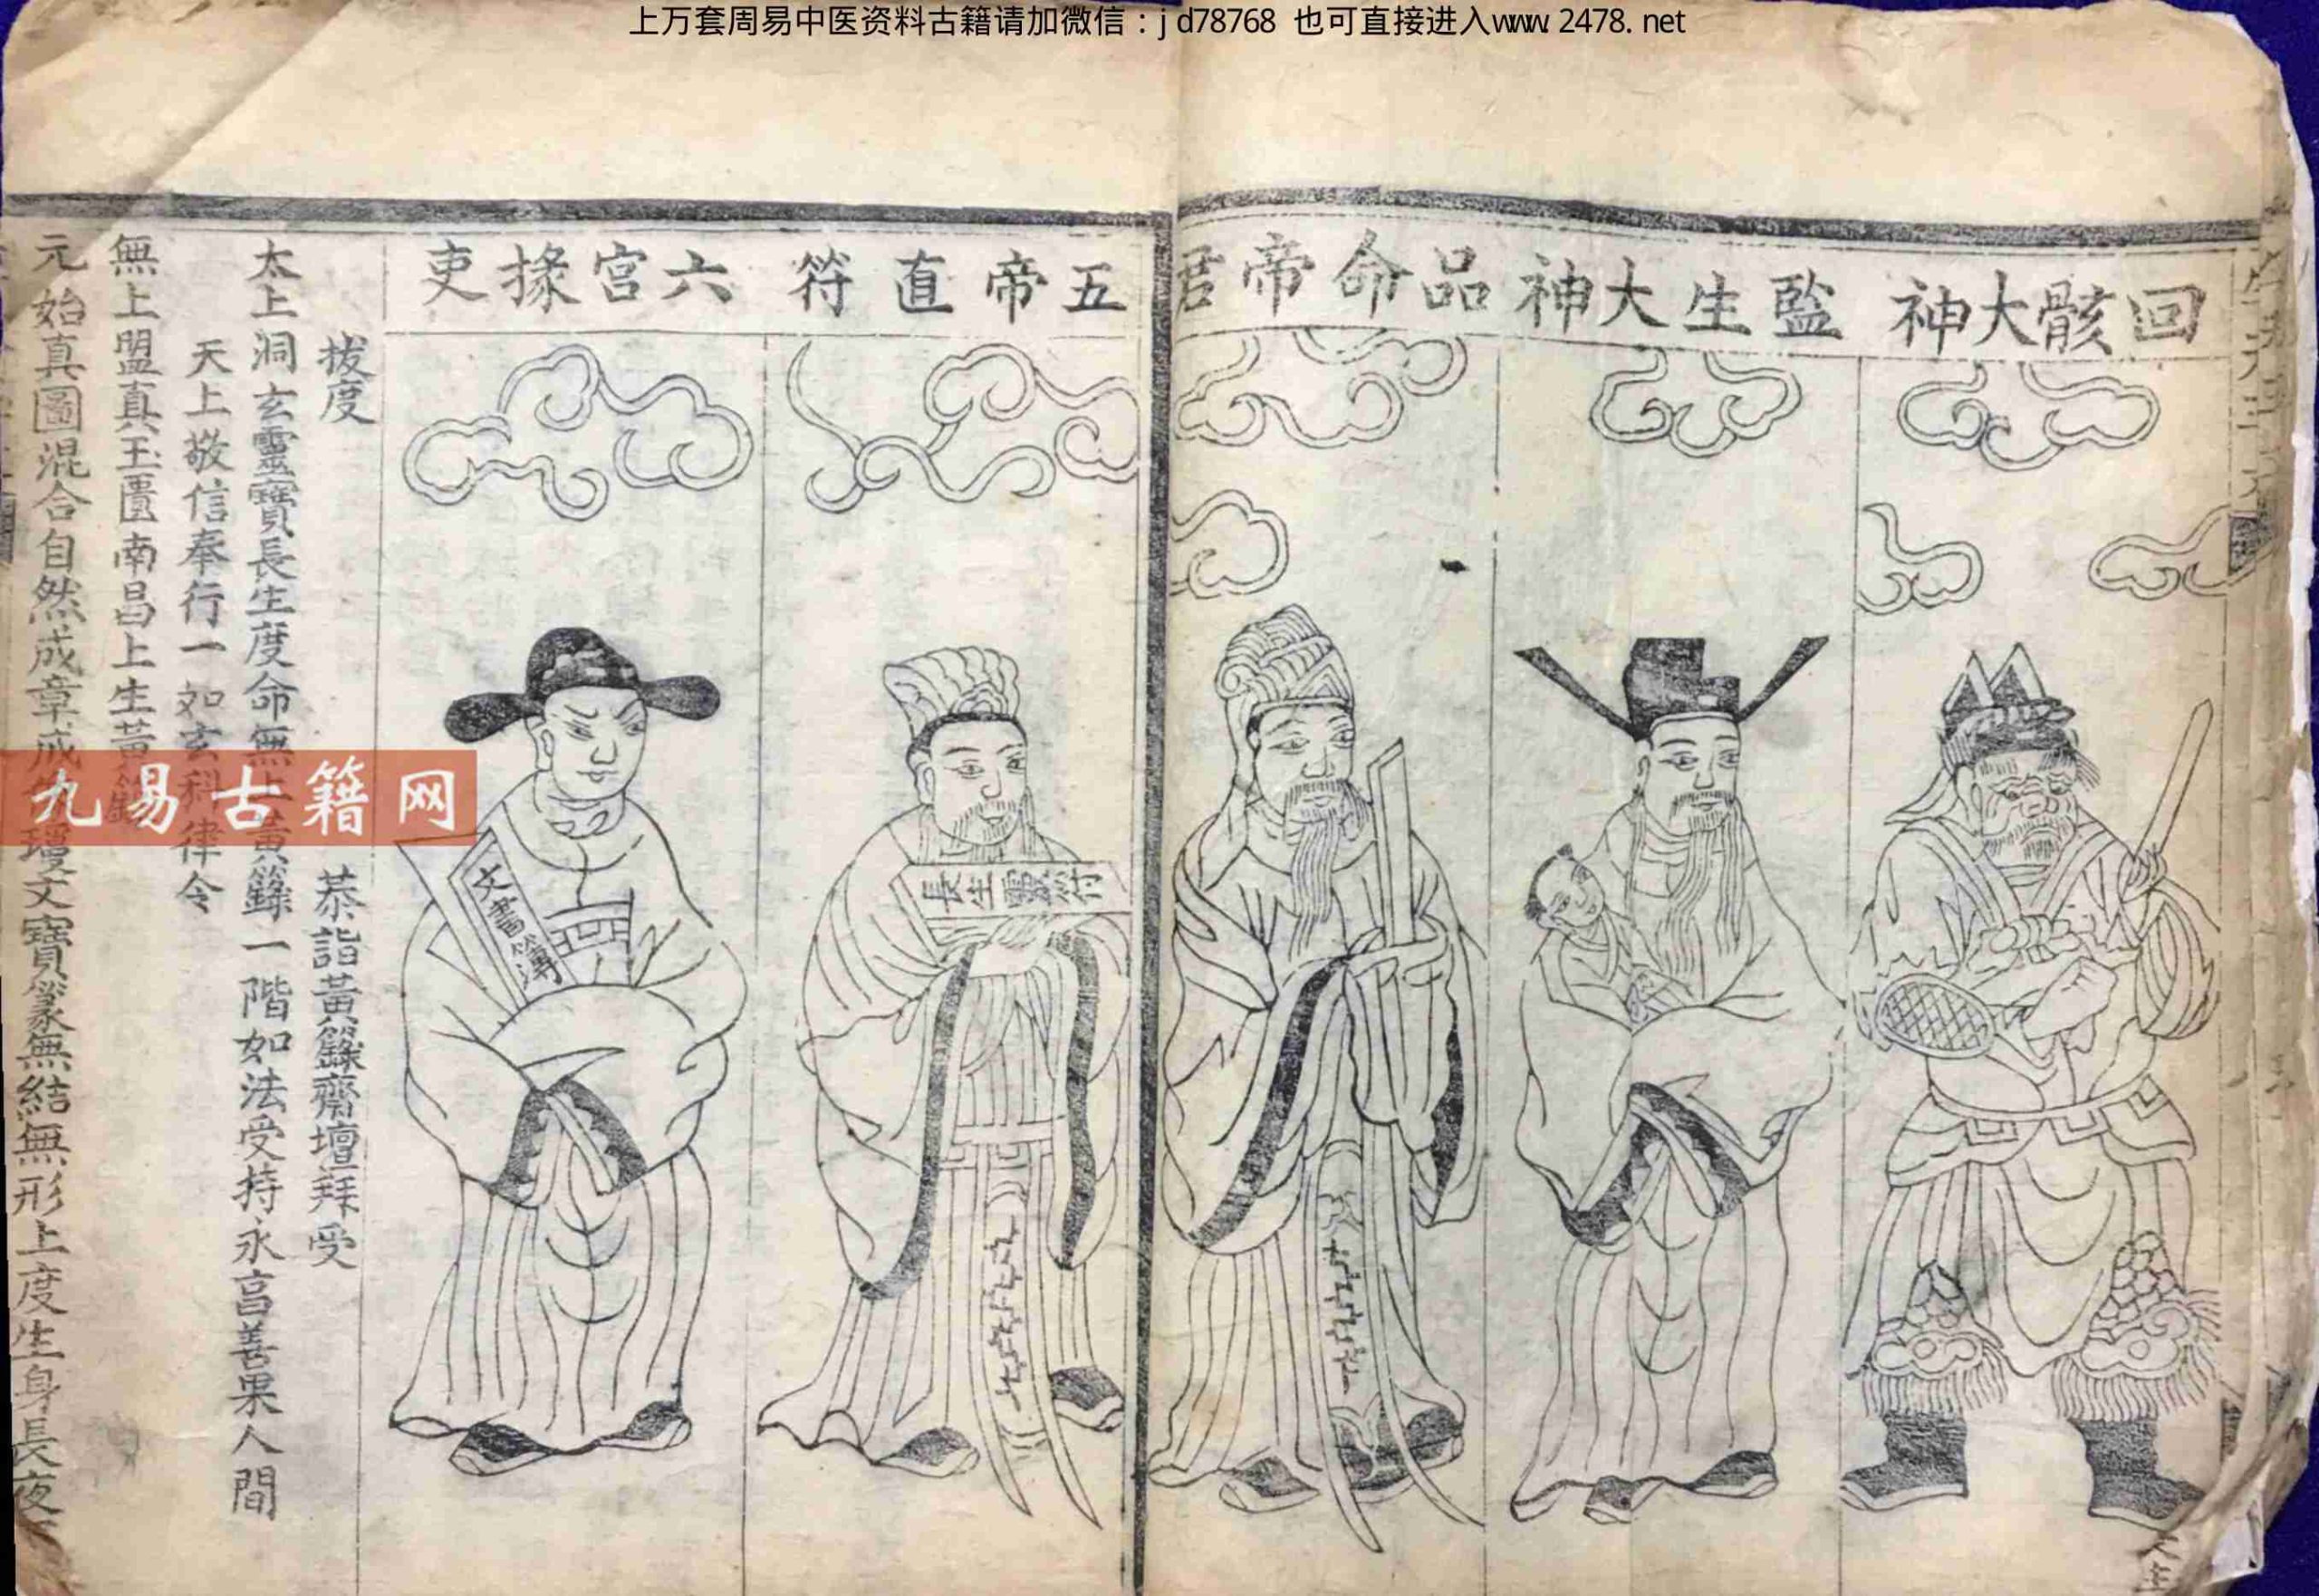 上万套周易中医资料古籍请加微信：jd78768 也可直接进入www.2478.net
回骸大神
監生大神
品命帝君
五帝直符
六宮掾吏
長生靈符
文書簿
拔度
恭詣黃籙齋壇拜受
太上洞玄靈寶長生度命無上黃籙一階如法受持永亯善果人間
天上敬信奉行一如玄科律令
無上盟真玉匱南昌上生黃籙
元始真圖混合自然成章 瓊文寶篆無結無形上度生身長夜
九易古籍网